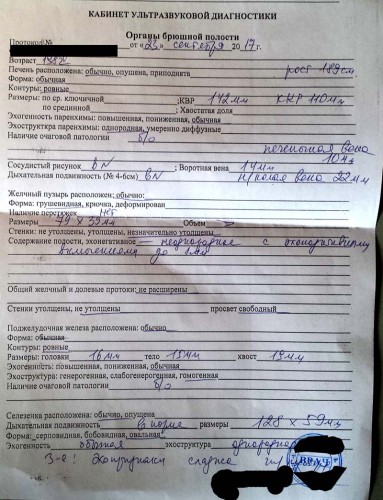 КАБИНЕТ УЛЬТРАЗВУКОВОЙ ДИАГНОСТИКИ
Органы брюшной полости
Протокол № от «23» сентября 2017г.
Возраст
Печень расположена: обычно, опущена, приподнята рост 189см
Контуры: ровные
Размеры: по ср. ключичной ;КВР 142мм ККР 110мм
по срединной ; Хвостатая доля
Эхогенность паренхимы: повышенная, пониженная, обычная
Эхоструктура паренхимы: однородная, умеренно диффузные
Наличие очаговой патологии б/о
печеночная вена
10мм
Сосудистый рисунок N ; Воротная вена 14мм
Дыхательная подвижность (№ 4-6см) N н/полая вена 22мм
Желчный пузырь расположен; обычно:
Форма: грушевидная, крючка, деформирован
Наличие перетяжек нет
Размеры 79 х 33мм Объем
Стенки: не утолщены, утолщены, незначительно утолщены
Содержание полости, эхонегативное – неоднородное с
включениями до
Общий желчный и долевые протоки: не расширены
Стенки утолщены, не утолщены просвет свободный
Поджелудочная железа расположена: обычно
Форма: обычная
Контуры: ровные
Размеры: головки 16мм тело 15мм хвост 19мм
Эхогенность: повышенная, пониженная, обычная
Эхоструктура: генерогенная, слабогенерогенная, гомогенная
Наличие очаговой патологии б/о
Селезенка расположена: обычно, опущена
Дыхательная подвижность в норме размеры 128 х 59мм
Форма: серповидная, бобовидная, овальная
Эхогенность обычная эхоструктура однородная
З-е: Эхопризнаки сладжа